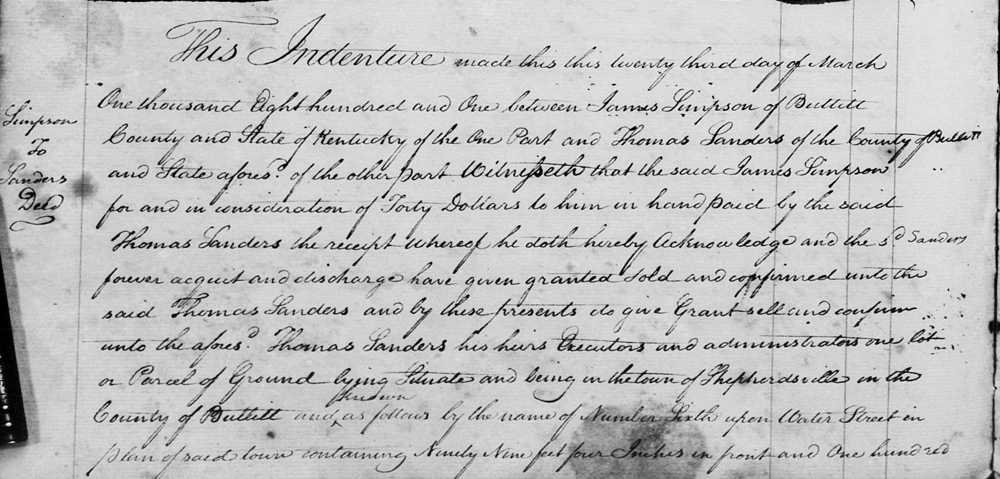 This Indenture made this this twenty third day of March
One thousand Eight hundred and One between James Simpson of Bullitt
Simpson
To
Sanders
Deed
County and State of Kentucky of the One Part and Thomas Sanders of the County of Bullitt
and State afores.d of the other part Witnesseth that the said James Simpson
for and in consideration of Forty Dollars to him in hand paid by the said
Thomas Sanders the receipt whereof he doth hereby Acknowledge and the s.d Sanders
forever acquit and discharge have given granted Sold and confirmed unto the
said Thomas Sanders and by these presents do give Grant sell and confirm
unto the afores.d Thomas Sanders his heirs Executors and administrators one lot
or Parcel of Ground lying Situate and being in the town of Shepherdsville in the
County of Bullitt and known as follows by the name of Number Sixth upon Water Street in
plan of said town containing Ninety Nine feet four Inches in front and One hundred